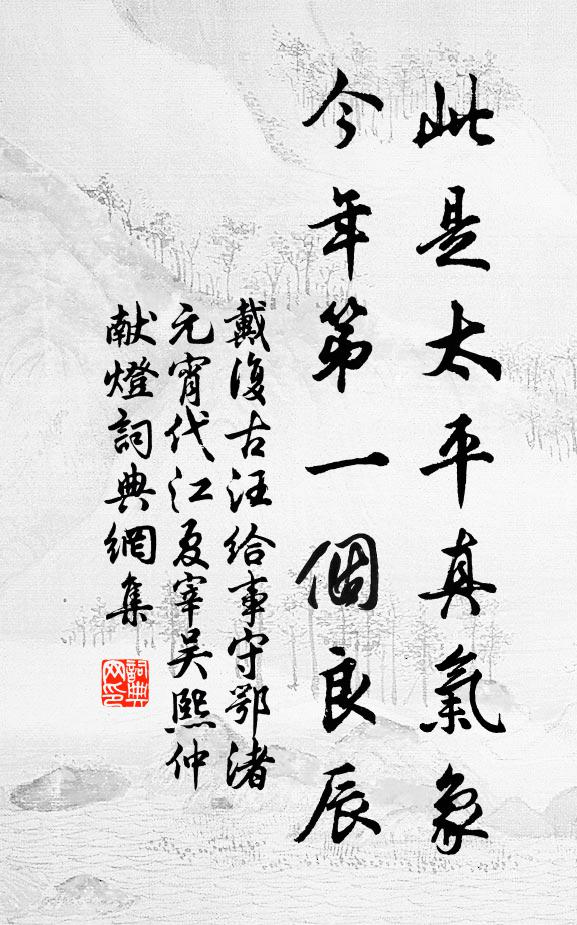 此是太平真氣象
今年第一個良辰
戴復古汪給事守鄂渚
元宵代江夏宰吴熙仲
献燈詞典網集
詞典网印